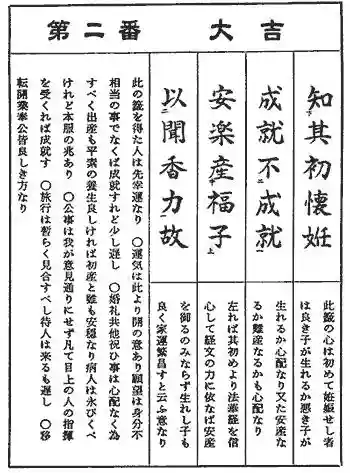 第二番　大吉
知其初懐妊
此籤の心は初めて妊娠せし者
は良き子が生れるか悪き子が
成就不成就
生れるか心配なり又た安産な
るか難産なるかも心配なり
安楽産福子
左れば其初めより法華経を信
心して経文の力に依なば安産
以聞香力故
を御るのみならず生れし子も
良く家運繁昌すと云ふ意なり
此の籤を得た人は先幸運なり　〇運気は此より開の意あり願望は身分不
相当の事でなくば成就すれど少し遅し　〇婚礼共他祝ひ事は心配なく為
すべく出産も平素の養生良しければ初産と雖も安穏なり病人は永びくべ
けれど本服の兆あり　〇公事は我が意見通りにせず凡て目上の人の指揮
を受くれば成就す　〇旅行は暫らく見合すべし待人は来るも遅し　〇移
転開業奉公皆良しき方なり